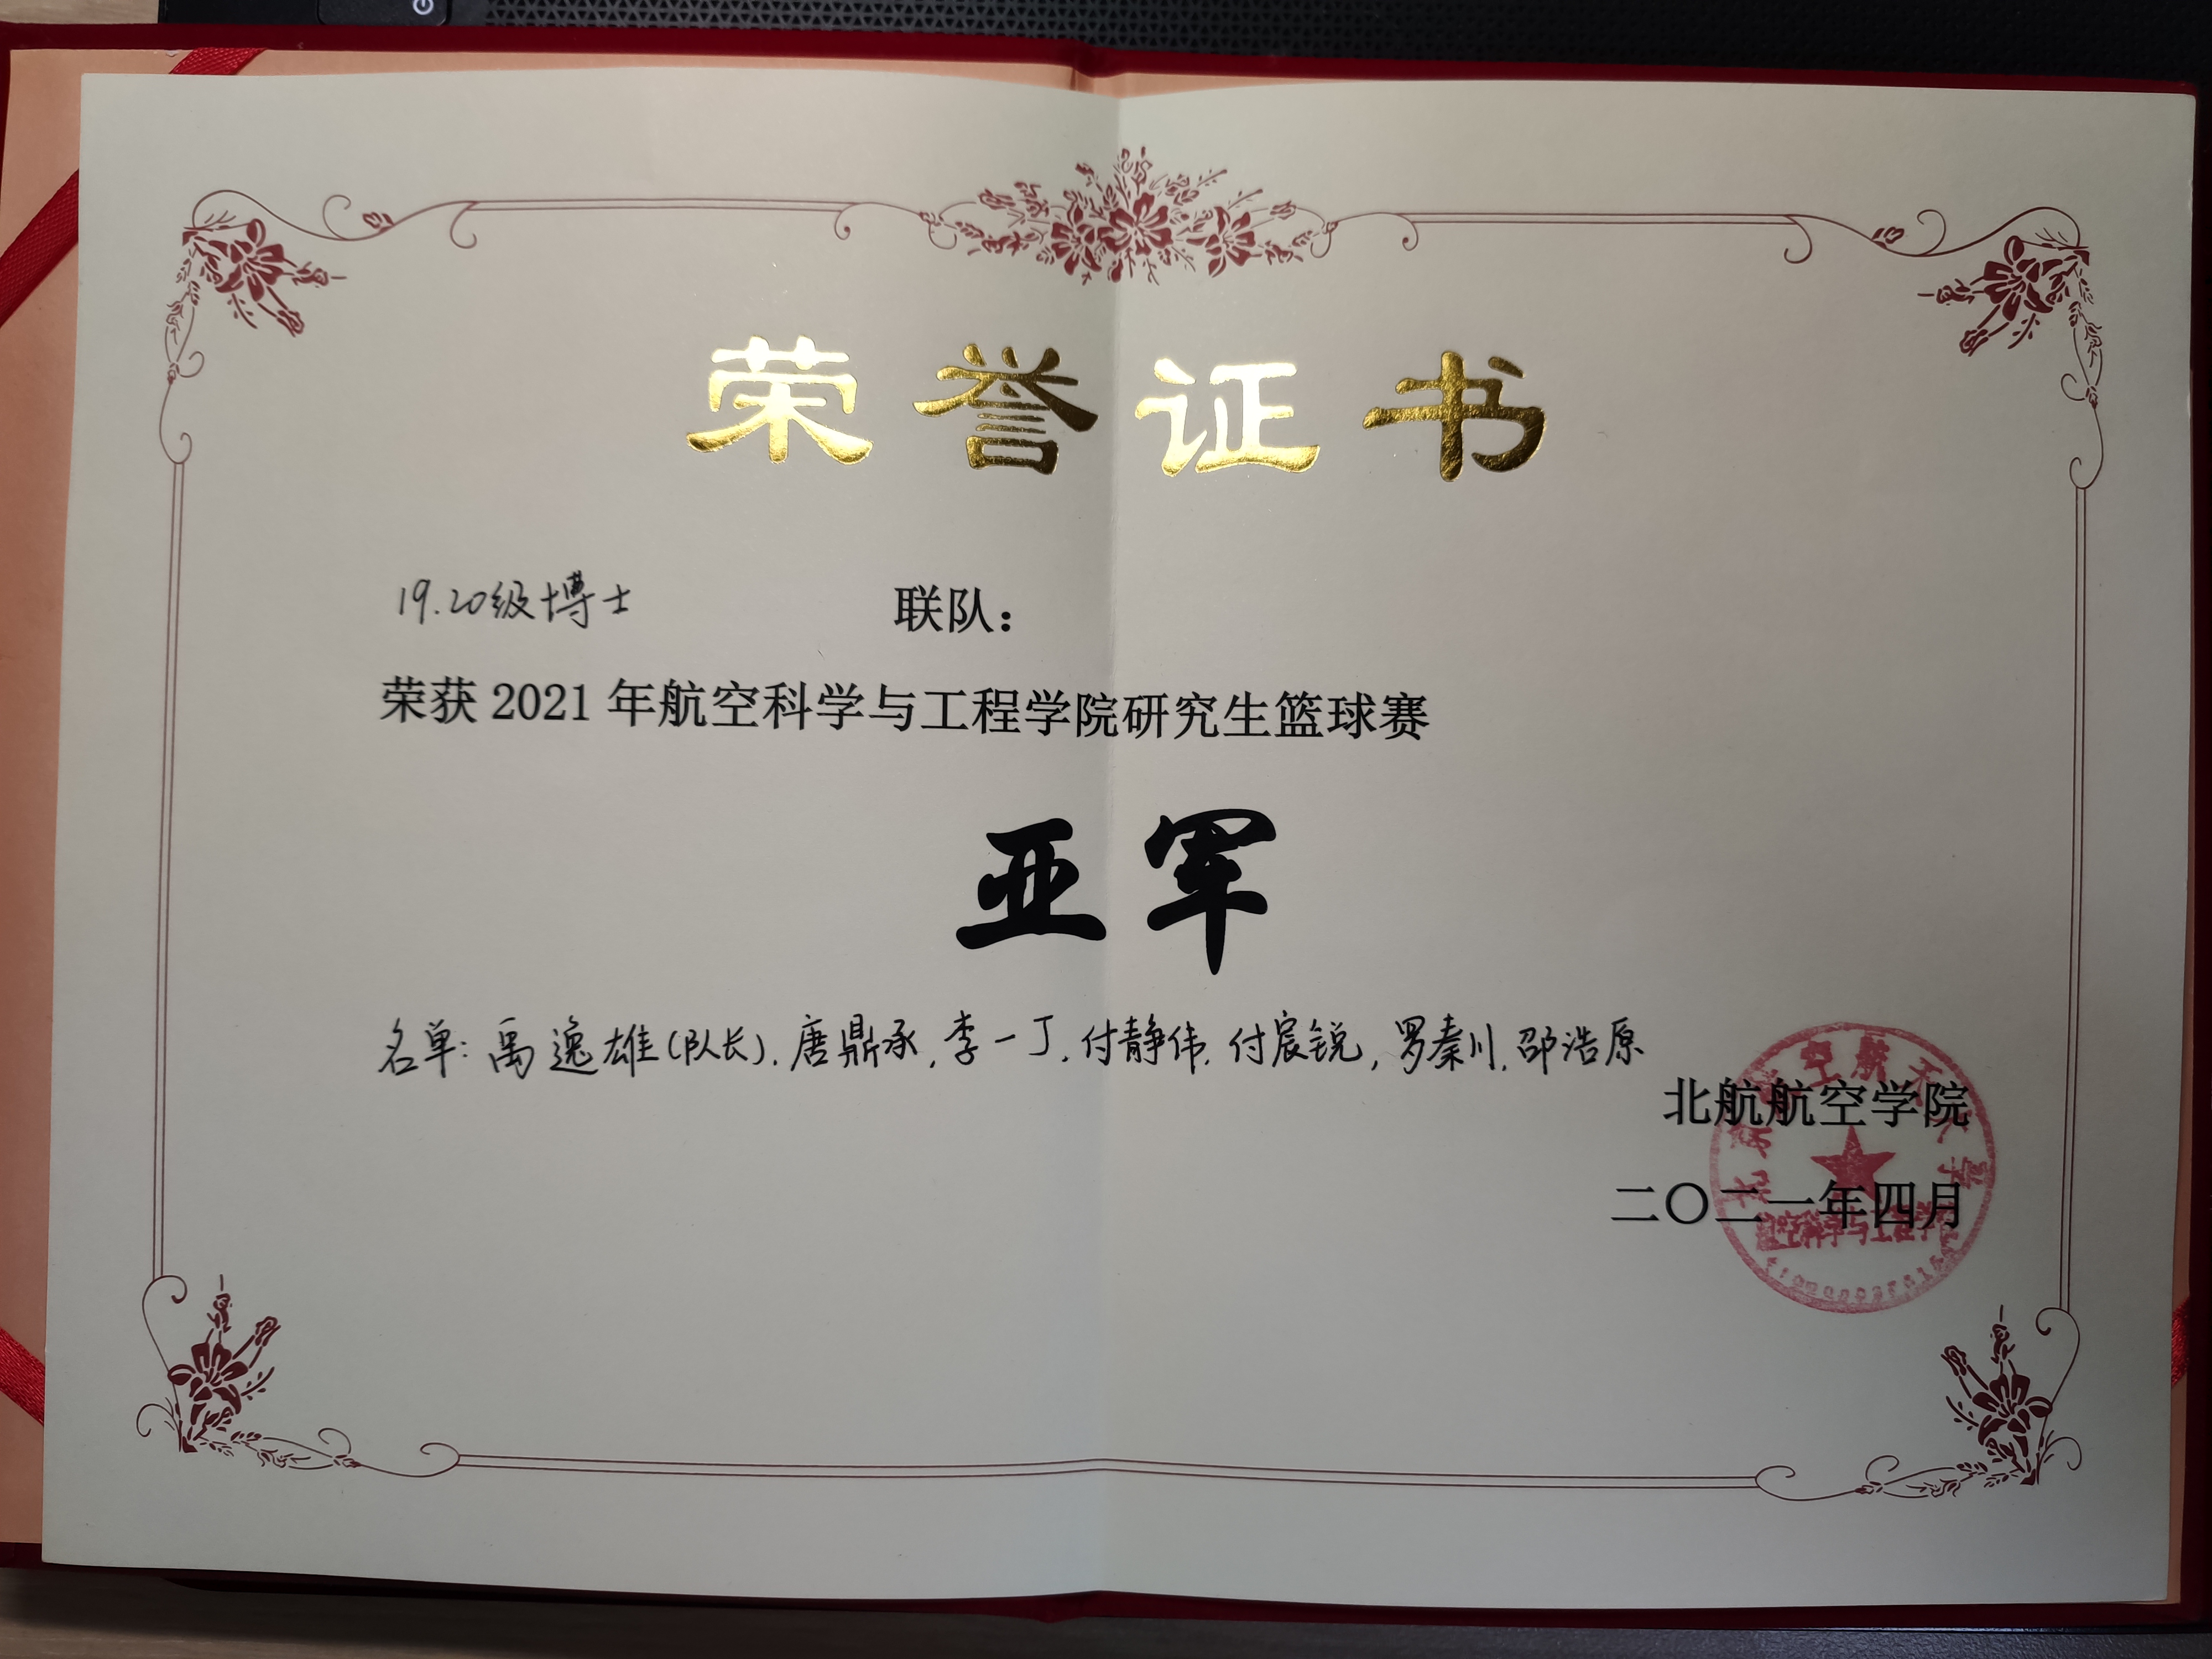 荣誉证书
19.20级博士 联队：
荣获 2021 年航空科学与工程学院研究生篮球赛
亚军
名单：禹逸雄(队长)，唐鼎承，李一丁，付静伟，付宸锐，罗秦川，邵浩原
北航航空学院
二〇二一年四月
北京航空航天大学
航空科学与工程学院